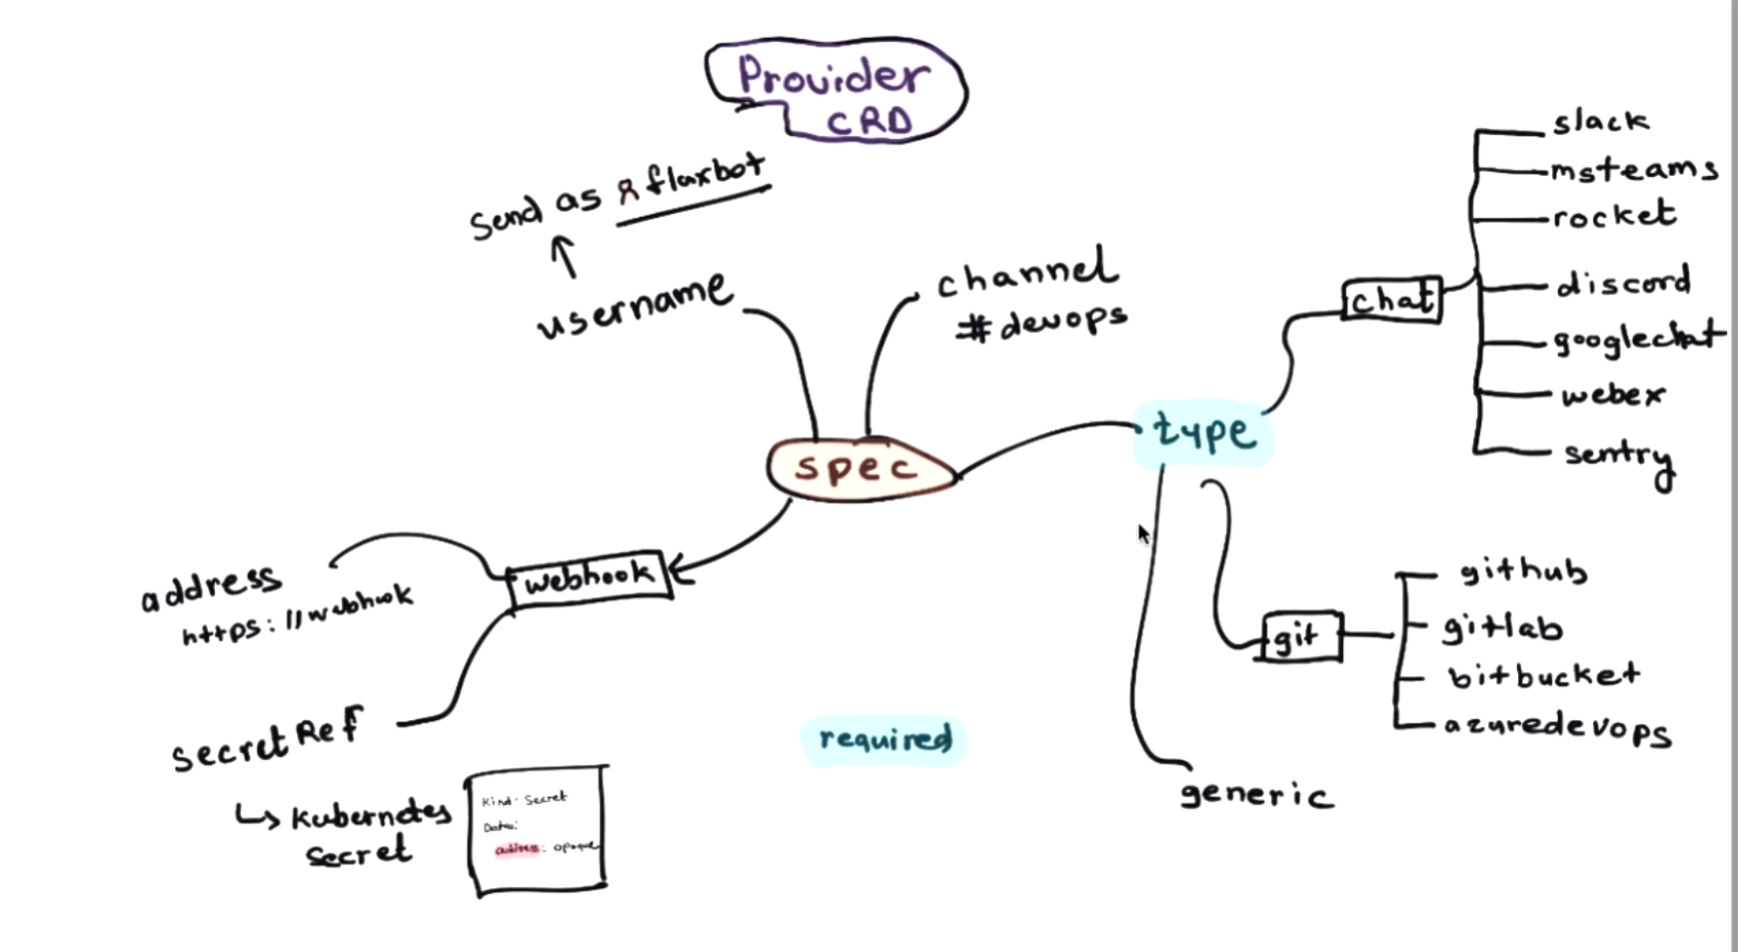 Provider
CRD
Send as fluxbot
username
channel
#devops
spec
type
chat
slack
msteams
rocket
discord
googlechat
webex
sentry
git
github
gitlab
bitbucket
azuredevops
generic
webhook
address
https://webhook
secretRef
Kubernetes
Secret
required
Kind: Secret
Data:
address: opaque